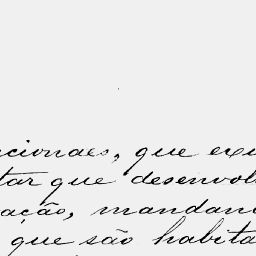 cionaes, que exi
tar que desenvol
ação, mandan
que são habita